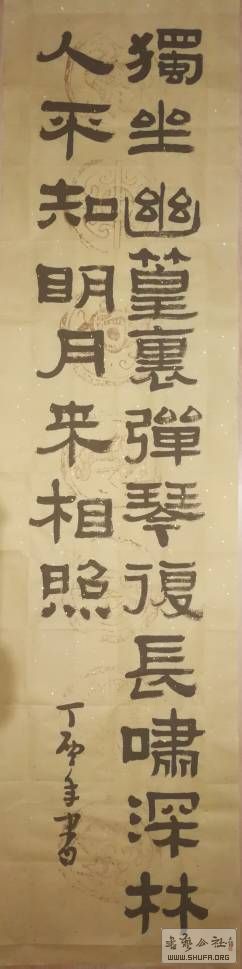 獨坐幽篁裏彈琴復長嘯深林
人不知眀月来相照
丁酉年書
书艺公社
WWW.SHUFA.ORG